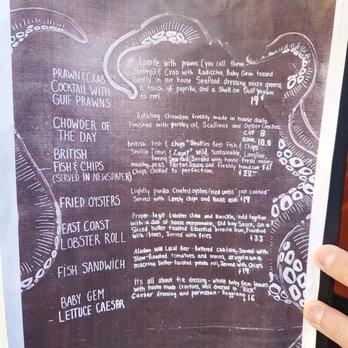 PRAWN & CRAB
COCKTAIL WITH
GULF PRAWNS
A Favorite with prawns (you call them
Shrimp) & Crab with Radicchio, Baby Gem tossed
Gently in our house Seafood dressing micro greens,
a touch of paprika, and a Shell on Gulf prawn
to peel.
19
CHOWDER OF
THE DAY
Rotating Chowders freshly made in house daily.
Finished with parsley oil, Scallions and Oyster Crackers
CUP 8
BOWL 10.5
BRITISH
FISH & CHIPS
(SERVED IN NEWSPAPER)
British - Fish & Chips Seattles Best Fish & Chips
Seattle Times & Zagat Wild, Sustainable, Longline
Bering Sea cod Served with house fresh minty
mushy peas, Tartar Sauce and Freshly house cut FAT
Chips Cooked to perfection.
22
FRIED OYSTERS
Lightly panko Coated oysters fried until just cooked
Served with Lemon, chips and Basil aioli
19
EAST COAST
LOBSTER ROLL
Proper legit Lobster claw and Knuckle, held together
with a dab of house mayonnaise, Old Bay Sauce, on a
Sliced butter toasted Brioche bun, Finished
with Chives, Served with Fries
33
FISH SANDWICH
Alaskan Wild Local Beer-battered cod, Served with
Slow-Roasted tomatoes and onions, arugula on a
macrina butter toasted potato roll, Served with Chips
19
BABY GEM
LETTUCE CAESAR
It's all about the dressing - whole baby Gem leaves
with house made Croutons, well dressed in "Rick"
Caesar dressing and parmesan - Reggiano
16